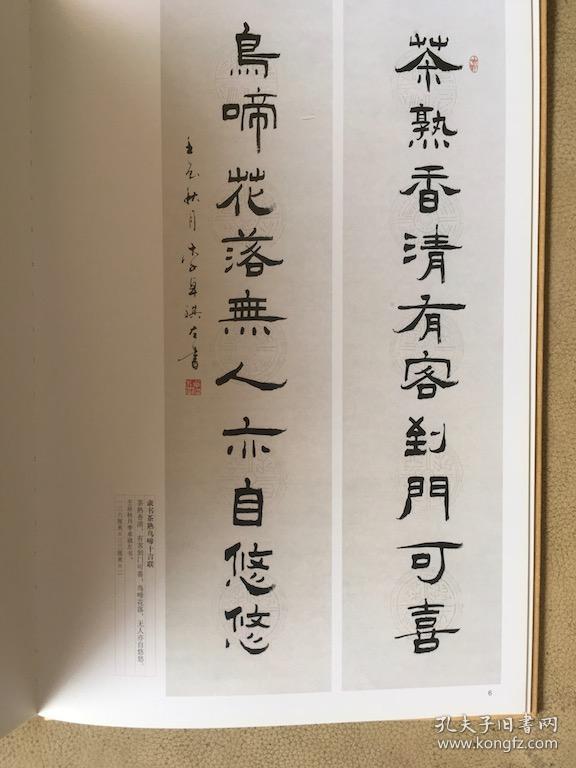 茶熟香清有客到門可喜
鳥啼花落無人亦自悠悠
壬辰秋月李卓祺左書
隶书茶熟鸟啼十言联
茶熟香清，有客到门可喜。鸟啼花落，无人亦自悠悠。
壬辰秋月李卓祺左书。
6
孔夫子旧书网
www.kongfz.com